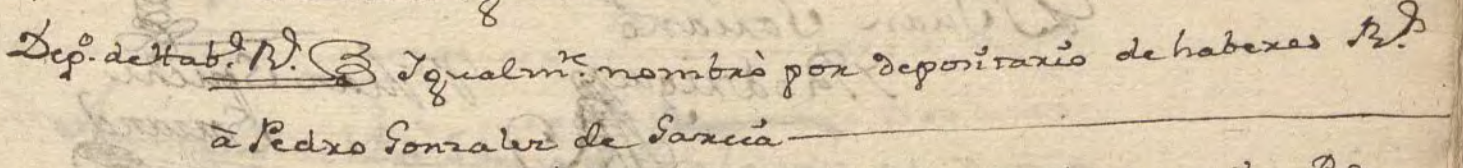 Dep.º de Hab.s R.s Igualm.te nombrò por depositario de haberes R.s
à Pedro Gonzalez de Garcia